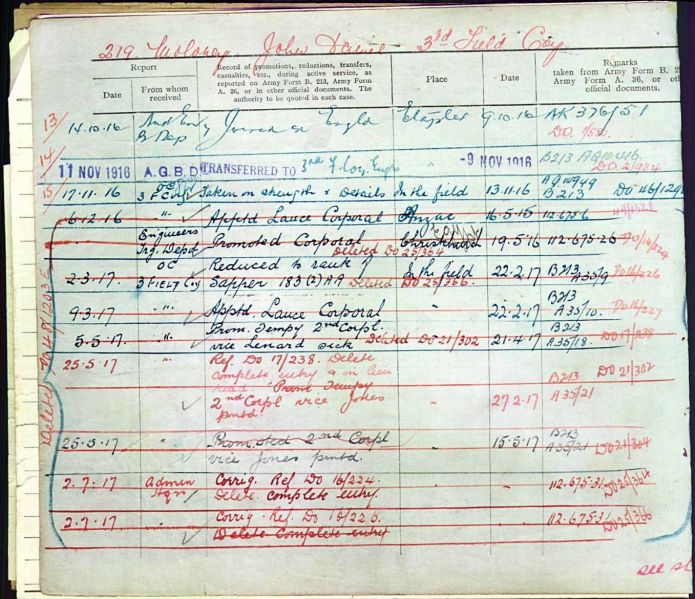 219 Moloney John Daniel 3rd Field Coy
Report
Date
From whom received
Record of promotions, reductions, transfers,
casualties, etc., during active service, as
reported on Army Form B. 213, Army Form
A. 36, or in other official documents. The
authority to be quoted in each case.
Place
Date
Remarks
taken from Army Form B. 2
Army Form A. 36, or oth
official documents.
13
14.10.16 B Dep Joined ex Engld Etaples 9.10.16 AK 376/51
14
B213
11 NOV 1916 A.G.B.D. TRANSFERRED TO 3rd F. Coy. Engrs -9 NOV 1916
15
17.11.16 3 F Coy Taken on strength x Details In the field 13.11.16 B213
6.12.16 " Apptd Lance Corporal Anzac 16.5.15 112.675.6
Engineers
Trg. Depot Promoted Corporal Christchurch 19.5.16 112.675.26 DO 16/224
Deleted DO 25/364
OC Reduced to rank of In the field B213 DO 16/226
2.3.17 3 FIELD Coy Sapper 183 (2) A.A Deleted DO 25/366. 22.2.17 A35/9
9.3.17 " Apptd. Lance Corporal " 22.2.17 B213 A35/10. DO 16/227
Prom. Tempy 2nd Corpl. B213 DO 17/238
5.5.17 " vice Lenard sick Deleted DO 21/302 21.4.17 A35/18.
25.5.17 " Ref. DO 17/238. Delete DO 21/302
complete entry & in lieu B213
read "Prom Tempy A35/21
2nd Corpl vice Jones " 27.2.17
pmtd.
25.5.17 " Promoted 2nd Corpl " 15.5.17 B213
vice Jones pmtd. A35/21 DO 21/304
2.7.17 Admin Corrig. Ref DO 16/224. 112.675.31 DO 25/364
Hqrs Delete complete entry.
2.7.17 " Corrig. Ref. DO 16/226. 112.675.31 DO 25/366
Delete Complete entry
see